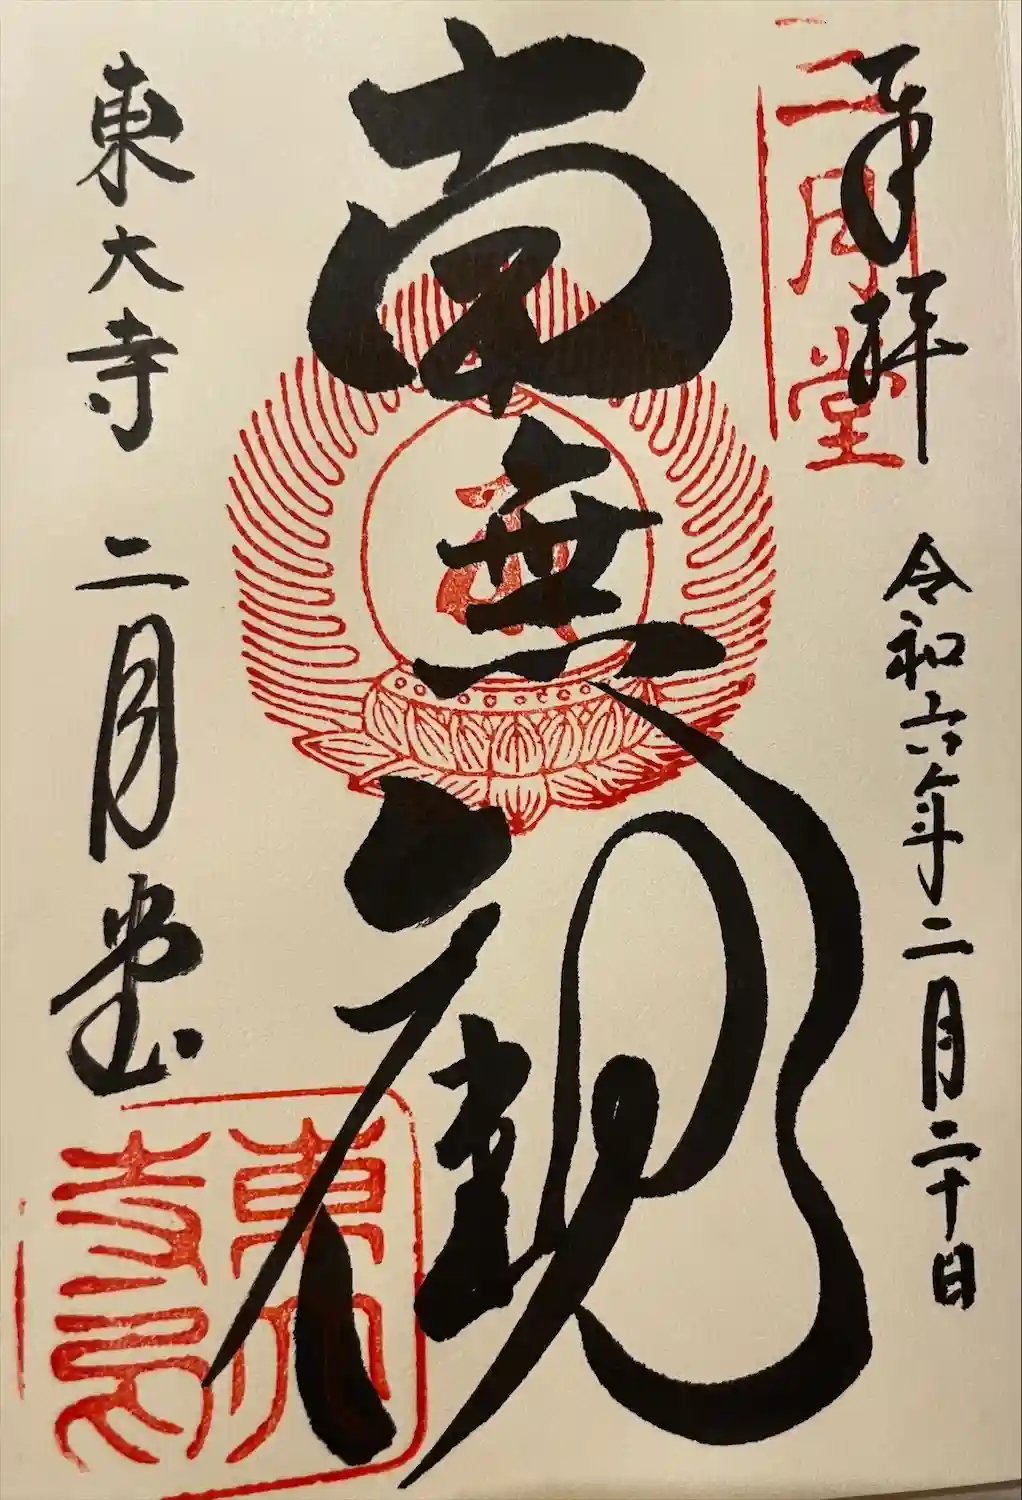 奉拝
二月堂
令和六年二月二十日
南無観
東大寺二月堂
東大
寺印